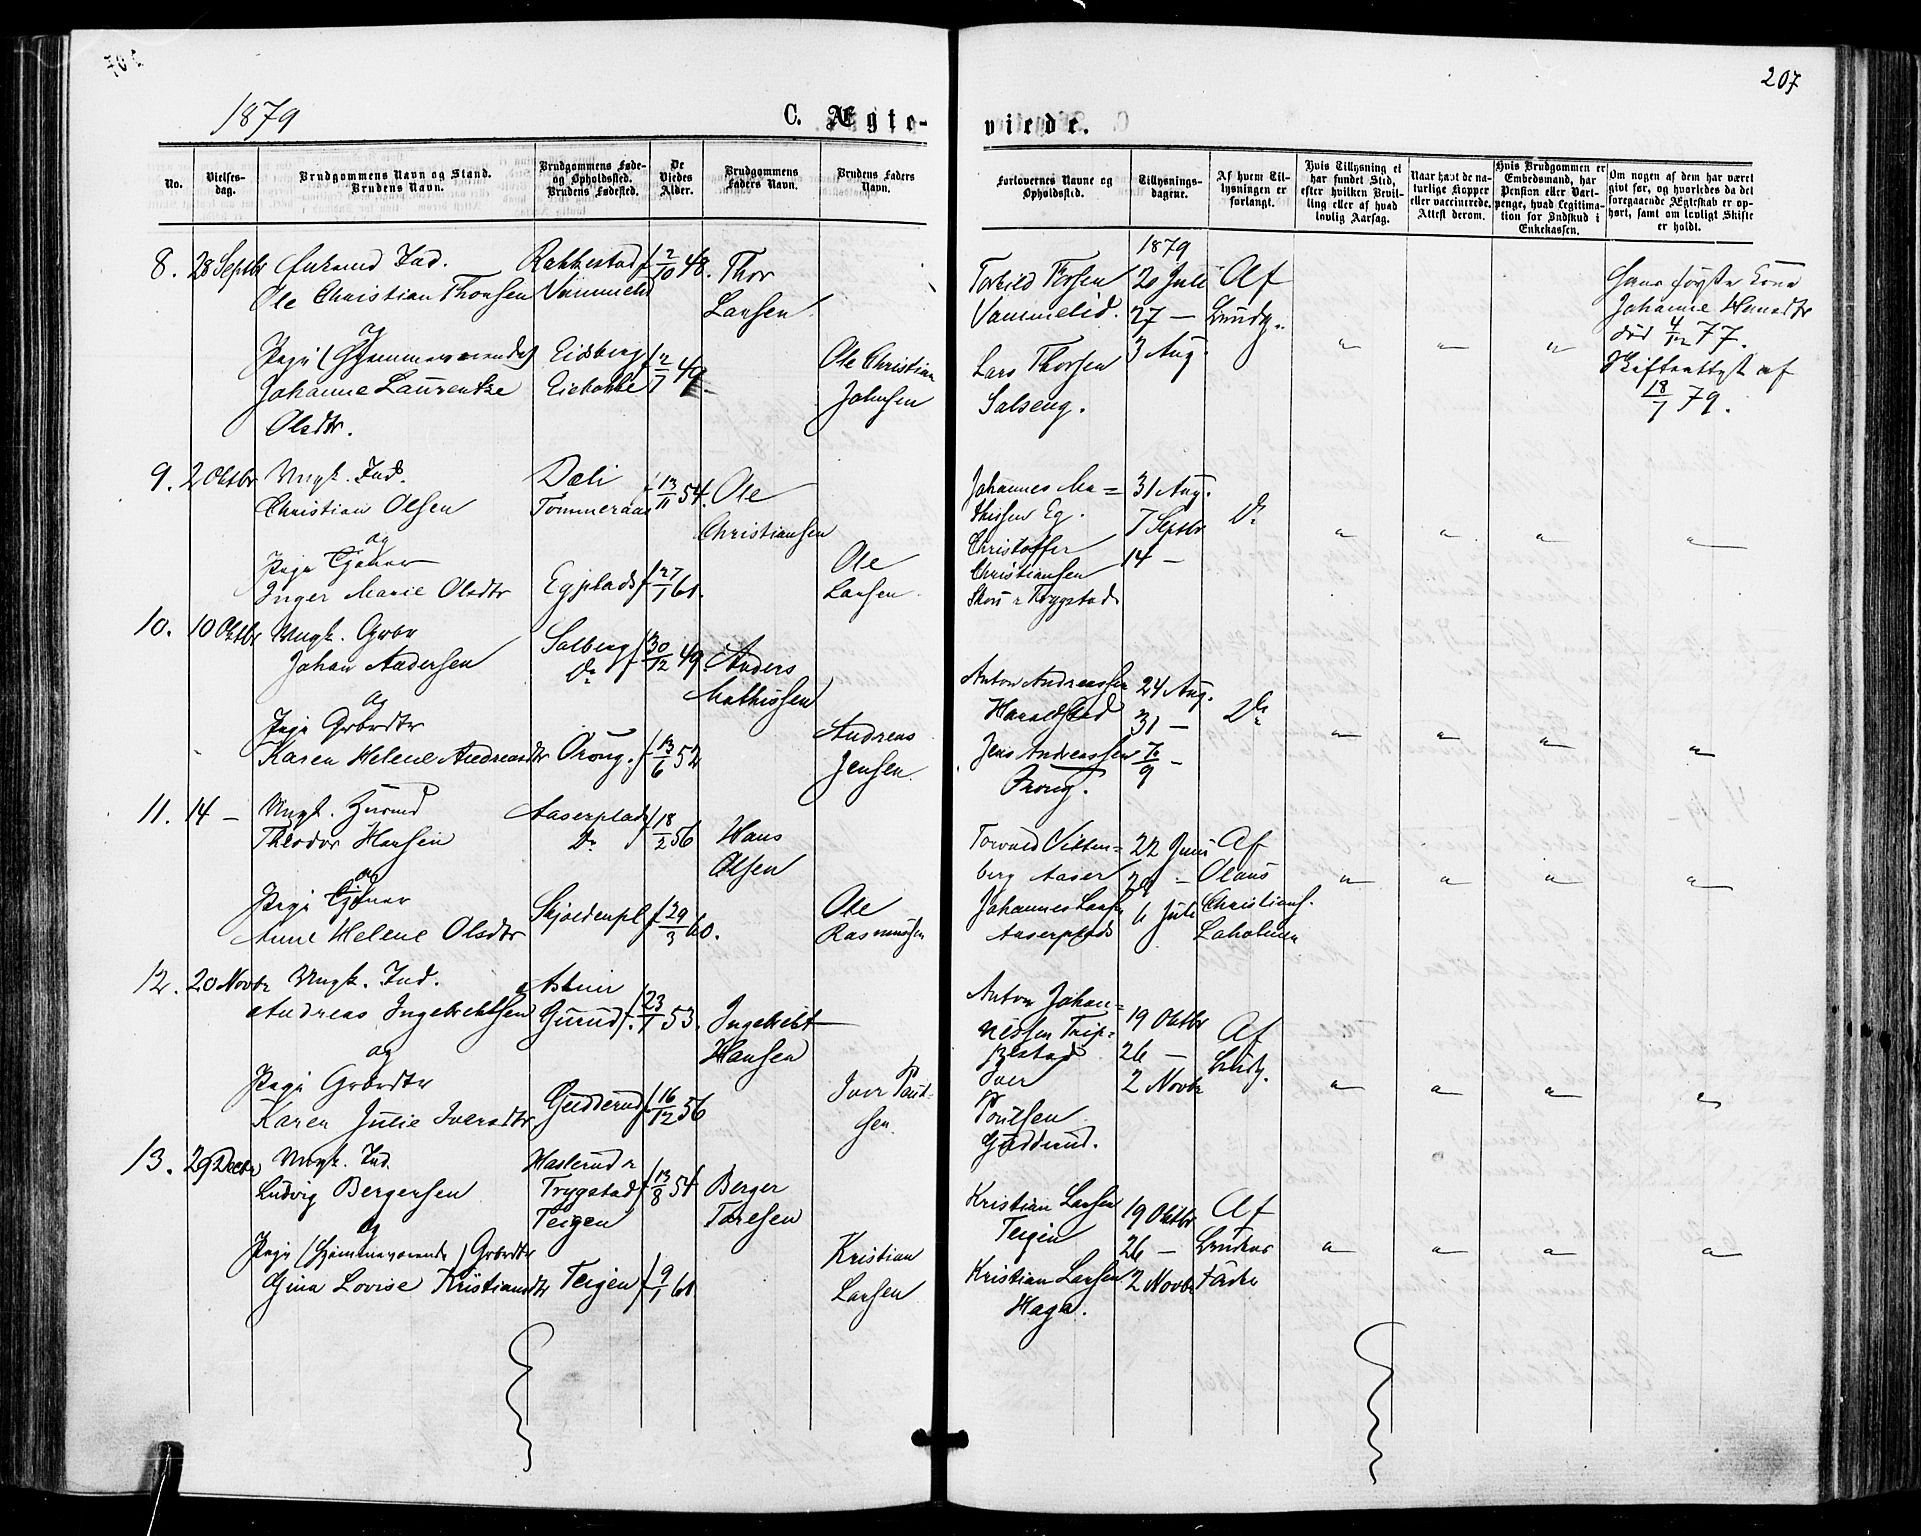 207
1879
C. Ægte-
viede.
No.
Vielses-
dag.
Brudgommens Navn og Stand.
Brudens Navn.
Brudgommens Føde-
og Opholdssted.
Brudens Fødested.
De
Viedes
Alder.
Brudgommens
Faders Navn.
Brudens Faders
Navn.
Forlovernes Navne og
Opholdssted.
Tillysnings-
dagene.
Af hvem Til-
lysningen er
forlangt.
Hvis Tillysning ei
har fundet Sted,
efter hvilken Bevil-
ling eller af hvad
lovlig Aarsag.
Naar havt de na-
turlige Kopper
eller vaccinerede.
Attest derom.
Hvis Brudgommen er
Embedsmand, har
Pension eller Vart-
penge, hvad Legitima-
tion for Indskud i
Enkekassen.
Om nogen af dem har været
givt før, og hvorledes da det
foregaaende Ægteskab er op-
hørt, samt om lovligt Skifte
er holdt.
8. 28 Septbr Enkemd Ind.
Ole Christian Thorsen
og
Pige (Hjemmeværende)
Johanne Laurentze
Olsdtr.
Rakkestad
Vammelid
Eidsberg
f 2/10 48.
f 2/7 49
Thor
Larsen.
Ole Christian
Johnsen
Torkild Torsen
Vammelid.
Lars Thorsen
Salseng.
1879
20 Juli
27 —
3 Aug.
Af
Brudg.
Hans første Kone
Johanne Hansdtr
død 4/12 77.
Skifteattest af
18/7 79.
9. 2 Oktbr Ungk. Ind.
Christian Olsen
og
Pige Tjener
Inger Marie Olsdtr
Dæli
Tømmeraas
Egplads
f 13/11 54.
f 27/1 60.
Ole
Christiansen
Ole
Larsen.
Johannes Ma=
thisen Eg.
Christoffer
Christiansen
Trygstad
31 Aug.
7 Septbr
14 —
Do
10. 10 Oktbr Ungk. Grbr
Johan Andersen
og
Pige Grbrdtr
Karen Helene Andreasdtr
Solberg
Do
Orong.
f 30/12 49.
f 13/6 52
Anders
Mathissen
Andreas
Jensen.
Anton Andreassen
Haraldstad
Jens Andreassen
Orong.
24 Aug.
31 —
7/9 —
Do
11. 14 — Ungk. Husmd
Theodor Hansen
og
Pige Tjener
Anne Helene Olsdtr
Aaserplads
Do
Skjoldenpl.
f 18/2 56
f 29/3 60.
Hans
Olsen
Ole
Rasmussen
Torvald Vitten=
berg Aaser
Johannes Larsen
Aaserplads
22 Juni
29 —
6 Juli
Af
Olaus
Christians.
Laholmen
12. 20 Novbr Ungk. Ind.
Andreas Ingebrechtsen
og
Pige Grbrdtr
Karen Julie Iversdtr
Askim
Gurud
Gudderud
f 23/1 53.
f 16/12 56
Ingebrecht
Hansen
Iver Poul-
sen.
Anton Johan=
nessen Trip=
pestad
Iver
Poulsen
Gudderud.
19 Oktbr
26 —
2 Novbr
Af
Brudg.
13. 29 Decbr Ungk. Ind.
Ludvig Bergersen
og
Pige (Hjemmeværende) Grbrdtr
Gina Lovise Kristiansdtr
Haslerud
Trygstad
Teigen
Teigen
f 13/8 54
f 9/1 60
Berger
Toresen
Kristian
Larsen
Kristian Larsen
Teigen
Kristian Larsen
Haga.
19 Oktbr
26 —
2 Novbr
Af
Brudens
Fader